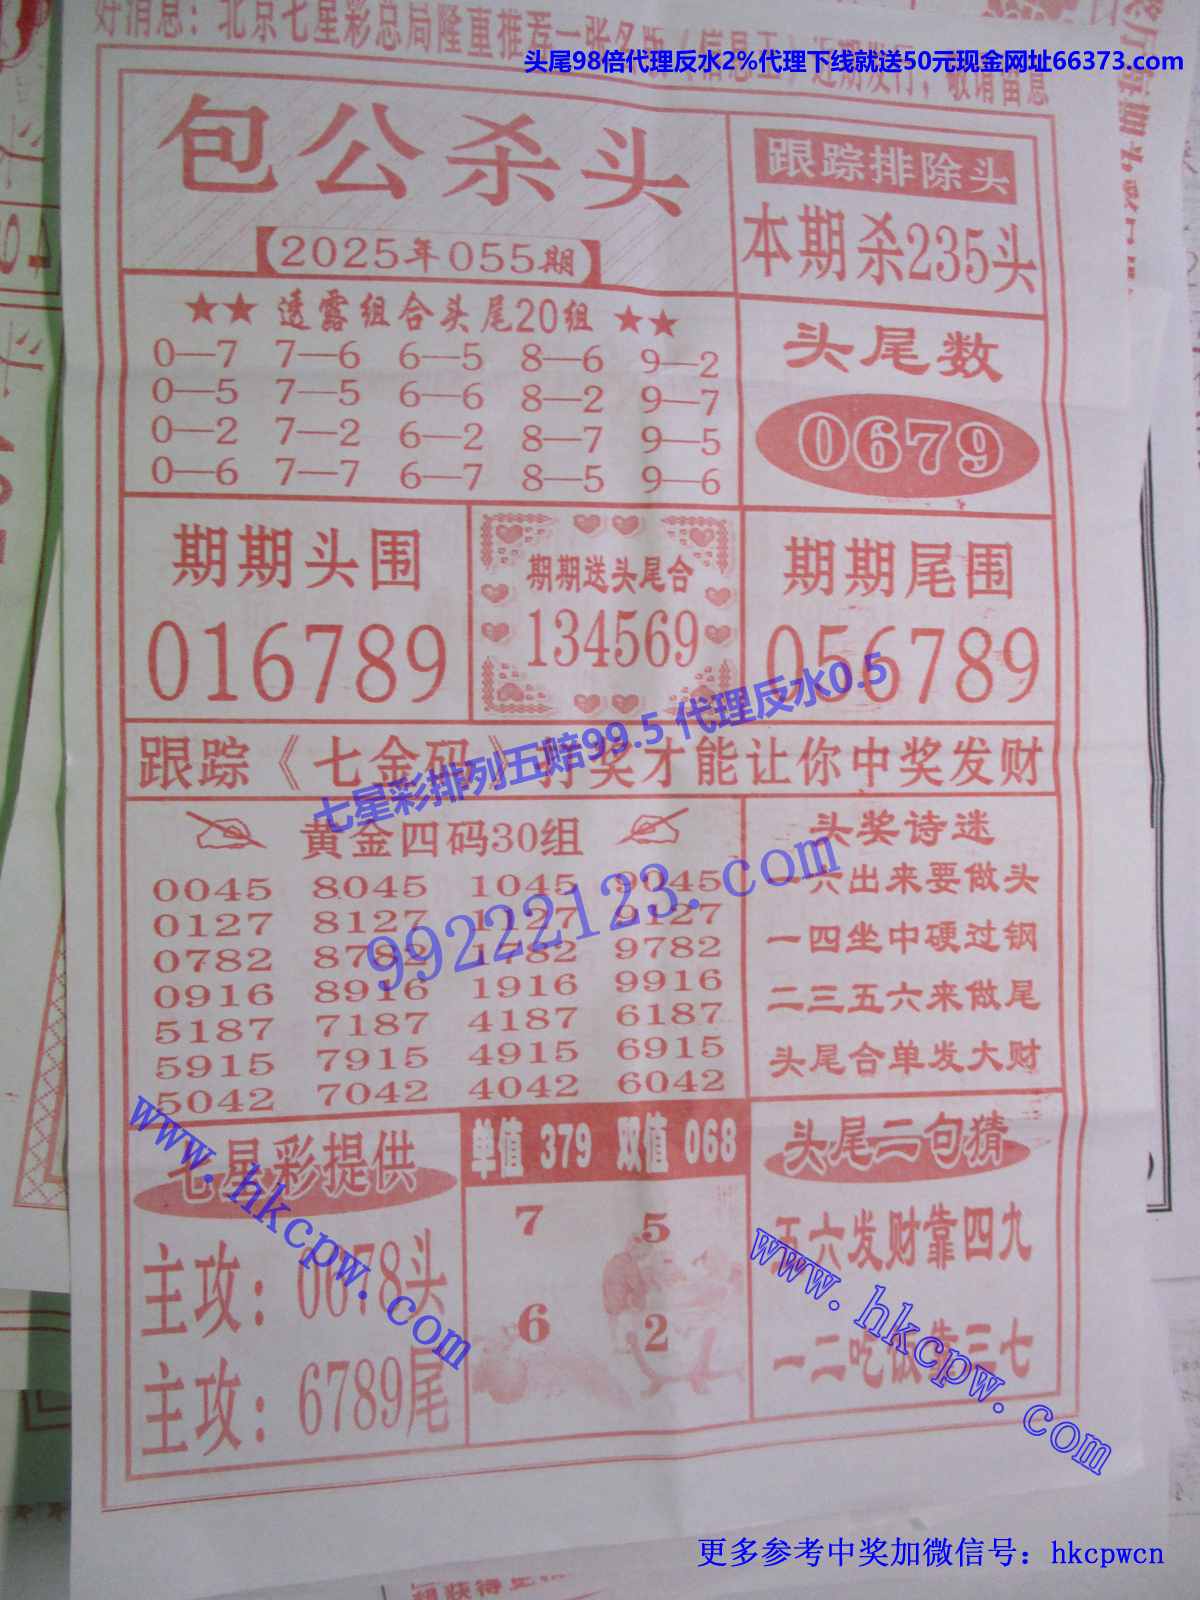 好消息：北京七星彩总局隆重推荐一张名版（信息王）近期发行，敬请留意
头尾98倍代理反水2%代理下线就送50元现金网址66373.com
包公杀头
【2025年055期】
跟踪排除头
本期杀235头
★★ 透露组合头尾20组 ★★
0—7 7—6 6—5 8—6 9—2
0—5 7—5 6—6 8—2 9—7
0—2 7—2 6—2 8—7 9—5
0—6 7—7 6—7 8—5 9—6
头尾数
0679
期期头围
016789
期期送头尾合
134569
期期尾围
056789
跟踪《七金码》打奖才能让你中奖发财
七星彩排列五赔99.5 代理反水0.5
黄金四码30组
0045 8045 1045 9045
0127 8127 1127 9127
0782 8782 1782 9782
0916 8916 1916 9916
5187 7187 4187 6187
5915 7915 4915 6915
5042 7042 4042 6042
99222123.com
头奖诗迷
一六出来要做头
一四坐中硬过钢
二三五六来做尾
头尾合单发大财
七星彩提供
主攻：0678头
主攻：6789尾
www.hkcpw.com
单值 379 双值 068
7 5
6 2
头尾二句猜
五六发财靠四九
一二吃饭靠三七
www.hkcpw.com
更多参考中奖加微信号：hkcpwcn